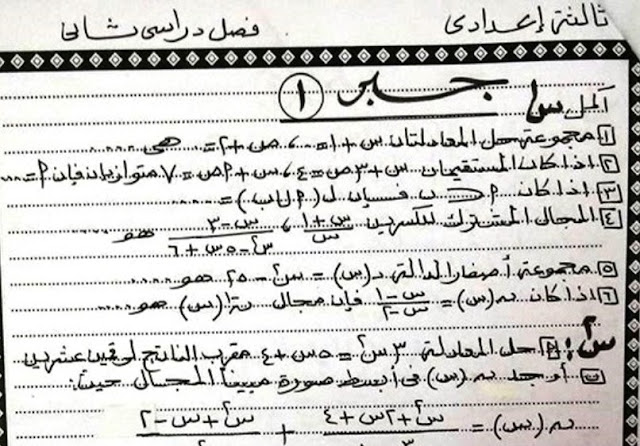 ثالثة إعدادى فصل دراسى ثانى
جبر ١
س١ أكمل
١ مجموعة حل المعادلتان س + ١ = ٠ ، ص + ٢ = ٠ هى ......
٢ اذا كان المستقيمان س + ٣ص = ٤ ، س + ٢ص = ٧ متوازيان فإن ٢ = ....
٣ اذا كان ٢ ⊂ ب فسان ل(٢ ∩ ب) = ......
٤ المجال المشترك للكسرين س+١/س ، س-٣/س٢-٥س+٦ هو
٥ مجموعة أصفار الدالة د(س) = س٢ - ٢٥ هو ......
٦ اذا كان ن(س) = س-١/س-٢ فإن مجال ن-١(س) هو ....
س٢: أ حل المعادلة ٣س٢ = ٥س + ٤ مقرب الناتج لرقمين عشريين
ب أوجد ن(س) فى أبسط صورة مبيناً المجال حيث:
ن(س) = س٢+٢س+٤ + س٢+س-٢